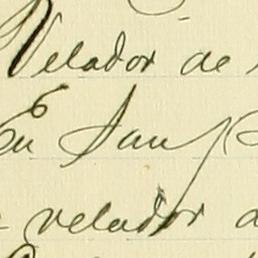 Velador de
En San
velador